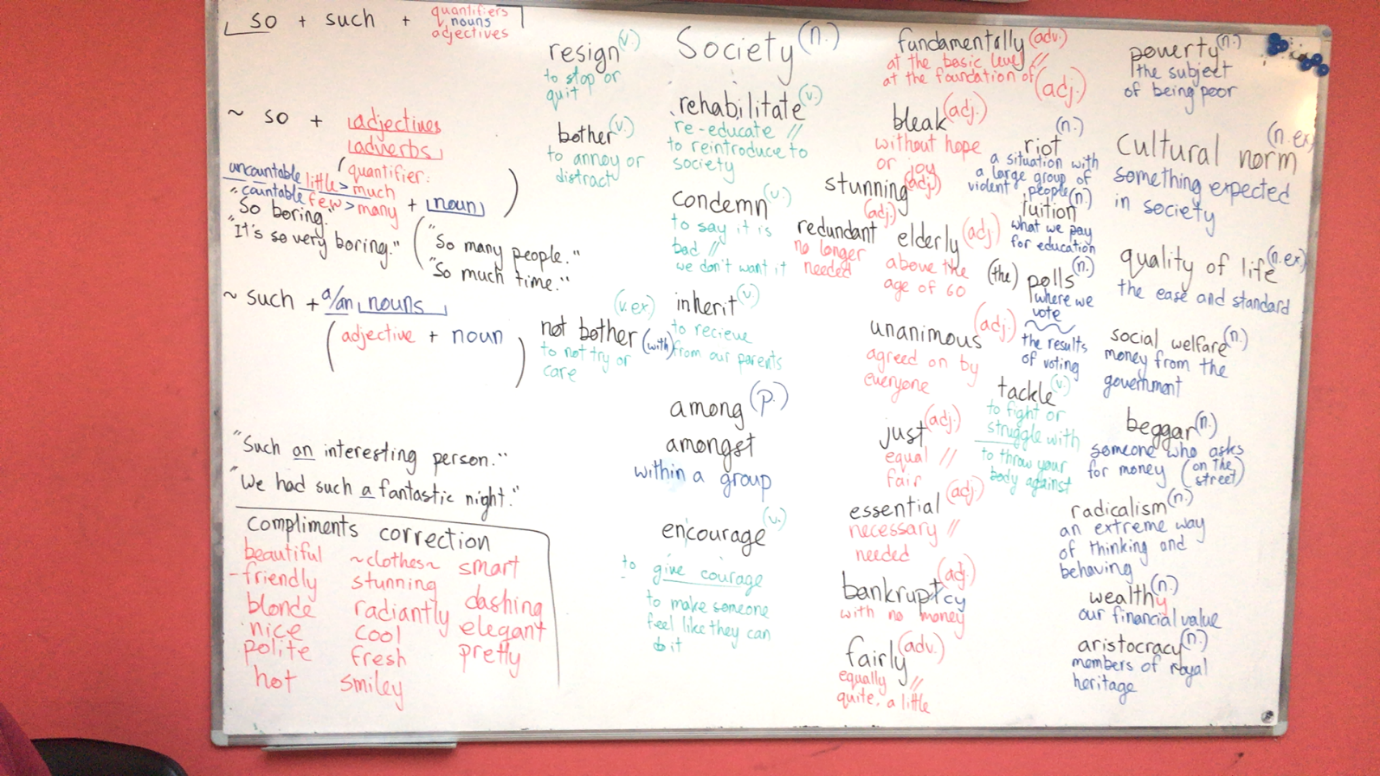 so + such + quantifiers
nouns
adjectives
~ so + adjectives
adverbs
(quantifier:
uncountable little > much
countable few > many + noun )
"So boring."
"It's so very boring."
("So many people."
"So much time."
~ such + a/an nouns
(adjective + noun)
"Such an interesting person."
"We had such a fantastic night."
compliments correction
beautiful ~clothes~ smart
-friendly stunning dashing
blonde radiantly elegant
nice cool pretty
polite fresh
hot smiley
resign (v.)
to stop or
quit
bother (v.)
to annoy or
distract
(v.ex)
not bother (with)
to not try or
care
Society (n.)
rehabilitate (v.)
re-educate //
to reintroduce to
society
condemn (v.)
to say it is
bad //
we don't want it
inherit (v.)
to recieve
from our parents
among (p.)
amongst
within a group
encourage (v.)
to give courage
to make someone
feel like they can
do it
fundamentally (adv.)
at the basic level //
at the foundation of
(adj.)
bleak (adj.)
without hope
or joy
stunning (adj.)
redundant (adj.)
no longer
needed
elderly (adj)
above the
age of 60
unanimous (adj.)
agreed on by
everyone
just (adj.)
equal //
fair
essential (adj.)
necessary //
needed
bankruptcy (adj.)
with no money
fairly (adv.)
equally //
quite, a little
riot (n.)
a situation with
a large group of
violent people
tuition (n)
what we pay
for education
(the) polls (n.)
where we
vote
the results
of voting
tackle (v.)
to fight or
struggle with
to throw your
body against
poverty (n.)
the subject
of being poor
cultural norm (n.ex)
something expected
in society
quality of life (n.ex)
the ease and standard
social welfare (n.)
money from the
government
beggar (n.)
someone who asks
for money (on the
street)
radicalism (n.)
an extreme way
of thinking and
behaving
wealthy (n.)
our financial value
aristocracy (n.)
members of royal
heritage